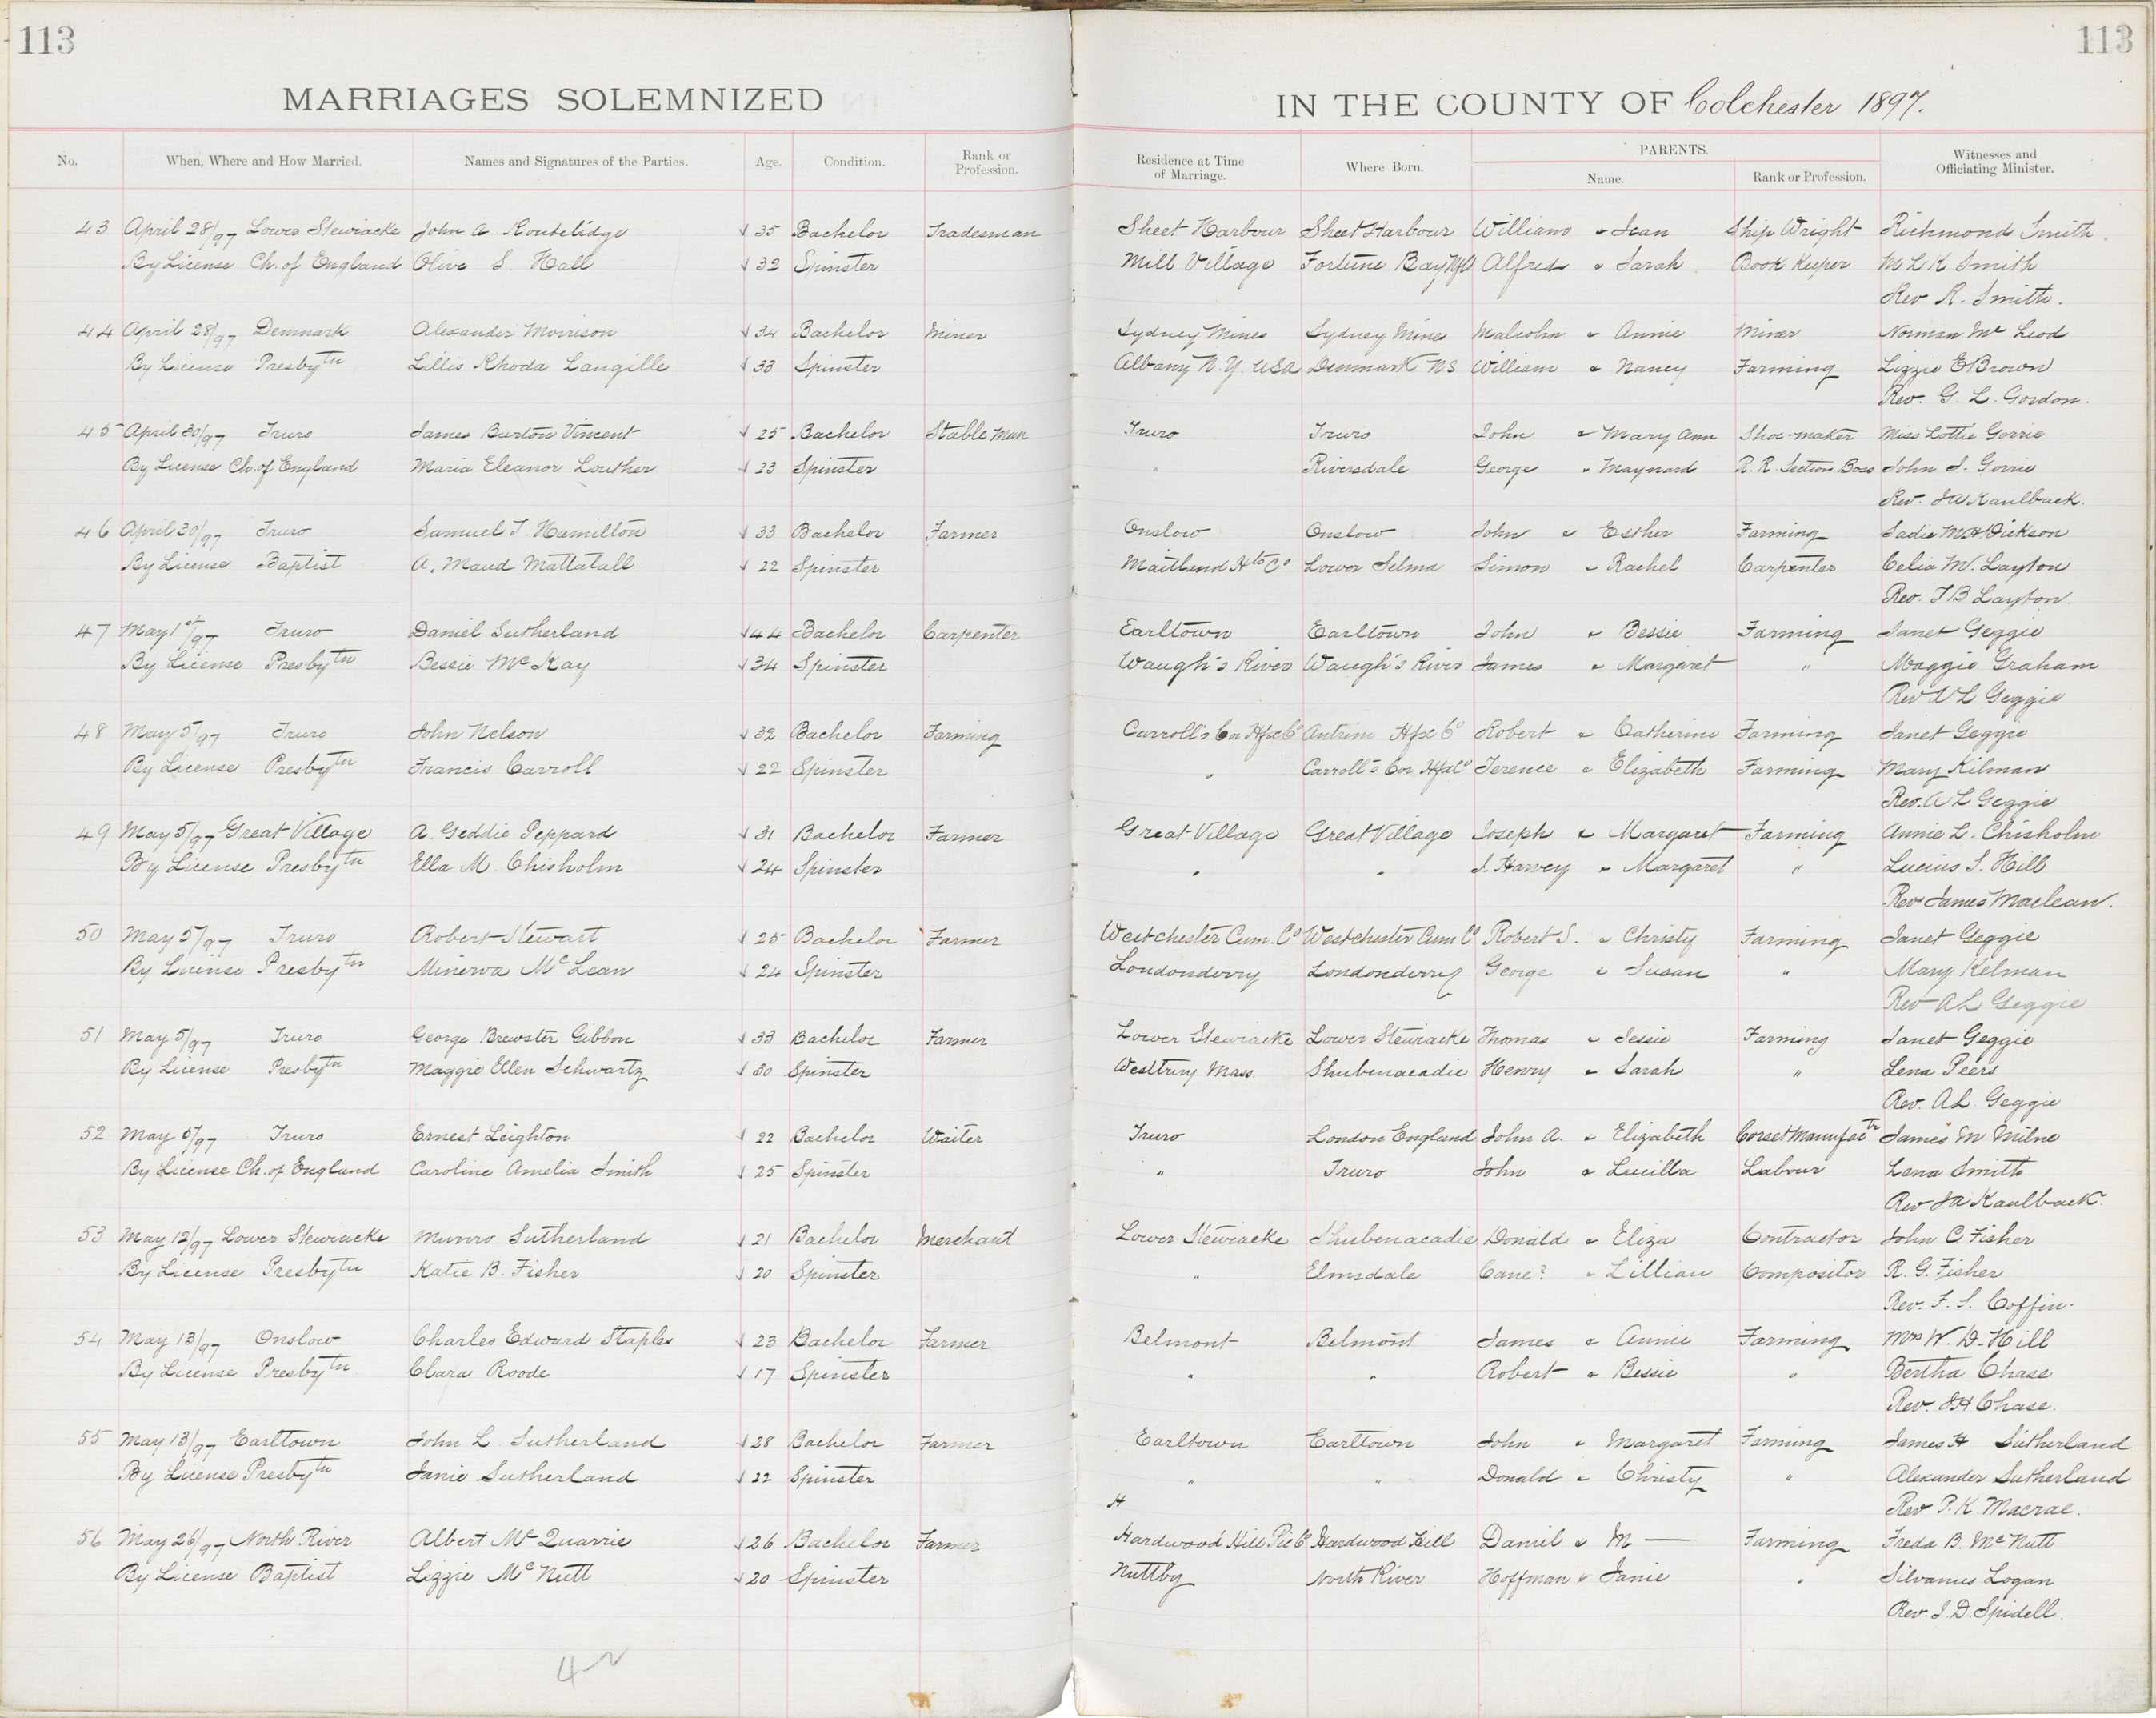 113 113
MARRIAGES SOLEMNIZED IN THE COUNTY OF Colchester 1897.
No. When, Where and How Married. Names and Signatures of the Parties. Age. Condition. Rank or Profession. Residence at Time of Marriage. Where Born. PARENTS. Name. Rank or Profession. Witnesses and Officiating Minister.
43 April 28/97 Lower Stewiacke John A Routelidge √ 35 Bachelor Tradesman Sheet Harbour Sheet Harbour William & Jean Ship Wright Richmond Smith
By License Ch. of England Olive S. Hall √ 32 Spinster Mill Village Fortune Bay Nfld Alfred & Sarah Book Keeper M L K Smith
Rev R. Smith.
44 April 28/97 Denmark Alexander Morrison √ 34 Bachelor Miner Sydney Mines Sydney Mines Malcolm & Annie Miner Norman Mc Leod
By License Presbytn Lillis Rhoda Langille √ 33 Spinster Albany N.Y. USA Denmark NS William & Nancy Farming Lizzie E Brown
Rev. G. L. Gordon.
45 April 30/97 Truro James Burton Vincent √ 25 Bachelor Stable Man Truro Truro John & Mary Ann Shoe-maker Miss Lottie Gorrie
By License Ch. of England Maria Eleanor Louther √ 23 Spinster " Riversdale George & Maynard R. R. Section Boss John S. Gorrie
Rev. J A Kaulback.
46 April 30/97 Truro Samuel T. Hamilton √ 33 Bachelor Farmer Onslow Onslow John & Esther Farming Sadie Dickson
By License Baptist A. Maud Mattatall √ 22 Spinster Maitland Hts Co Lower Selma Simon & Rachel Carpenter Celia W. Layton
Rev. T B Layton.
47 May 1st/97 Truro Daniel Sutherland √ 44 Bachelor Carpenter Earltown Earltown John & Bessie Farming Janet Geggie
By License Presbytn Bessie McKay √ 34 Spinster Waugh's River Waugh's River James & Margaret " Maggie Graham
Rev A L Geggie
48 May 5/97 Truro John Nelson √ 32 Bachelor Farming Carroll's Cor Hfx Co Antrim Hfx Co Robert & Catherine Farming Janet Geggie
By License Presbytn Francis Carroll √ 22 Spinster " Carroll's Cor. Hfx Co Terence & Elizabeth Farming Mary Kilman
Rev. A L Geggie
49 May 5/97 Great Village A. Geddie Peppard √ 31 Bachelor Farmer Great Village Great Village Joseph & Margaret Farming Annie L. Chisholm
By License Presbytn Ella M. Chisholm √ 24 Spinster " " J. Harvey & Margaret " Lucius S. Hill
Rev James Maclean.
50 May 5/97 Truro Robert Stewart √ 25 Bachelor Farmer Westchester Cum. Co Westchester Cum Co Robert S. & Christy Farming Janet Geggie
By License Presbytn Minerva McLean √ 24 Spinster Londonderry Londonderry George & Susan " Mary Kelman
Rev A L Geggie
51 May 5/97 Truro George Brewster Gibbon √ 33 Bachelor Farmer Lower Stewiacke Lower Stewiacke Thomas & Jessie Farming Janet Geggie
By License Presbytn Maggie Ellen Schwartz √ 30 Spinster Westbury Mass. Shubenacadie Henry & Sarah " Lena Peers
Rev. A L. Geggie
52 May 5/97 Truro Ernest Leighton √ 22 Bachelor Waiter Truro London England John A. & Elizabeth Corset Manufactr James M Milne
By License Ch. of England Caroline Amelia Smith √ 25 Spinster " Truro John & Lucilla Labour Lena Smith
Rev J A Kaulback.
53 May 12/97 Lower Stewiacke Munro Sutherland √ 21 Bachelor Merchant Lower Stewiacke Shubenacadie Donald & Eliza Contractor John C. Fisher
By License Presbytn Katie B. Fisher √ 20 Spinster " Elmsdale Cane? & Lillian Compositor R. G. Fisher
Rev. F. S. Coffin.
54 May 13/97 Onslow Charles Edward Staples √ 23 Bachelor Farmer Belmont Belmont James & Annie Farming Mrs W. D. Hill
By License Presbytn Clara Roode √ 17 Spinster " " Robert & Bessie " Bertha Chase
Rev. J H Chase.
55 May 13/97 Earltown John L. Sutherland √ 28 Bachelor Farmer Earltown Earltown John & Margaret Farming James H Sutherland
By License Presbytn Janie Sutherland √ 22 Spinster " " Donald & Christy " Alexander Sutherland
H Rev P. K. Macrae.
56 May 26/97 North River Albert McQuarrie √ 26 Bachelor Farmer Hardwood Hill Pic Co Hardwood Hill Daniel & M — Farming Freda B. McNutt
By License Baptist Lizzie McNutt √ 20 Spinster Nuttby North River Hoffman & Janie " Silvanus Logan
Rev. J. D. Spidell.